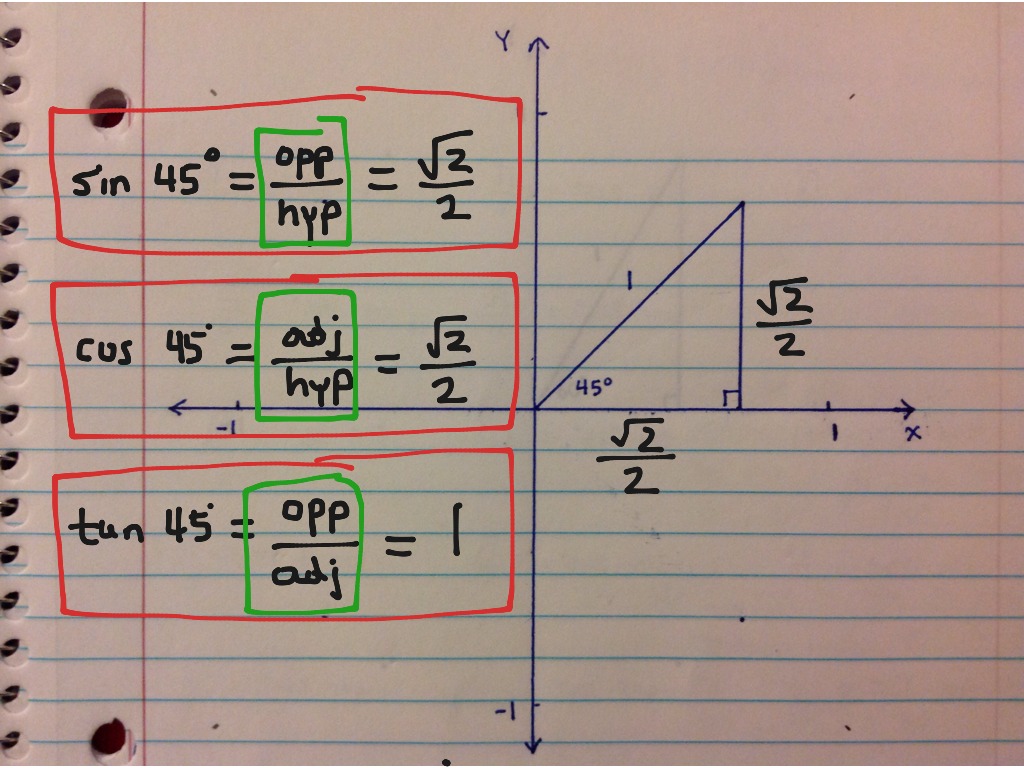 sin 45° = opp/hyp = √2/2
cos 45° = adj/hyp = √2/2
tan 45° = opp/adj = 1
Y
1
√2/2
45°
-1
1
x
√2/2
-1